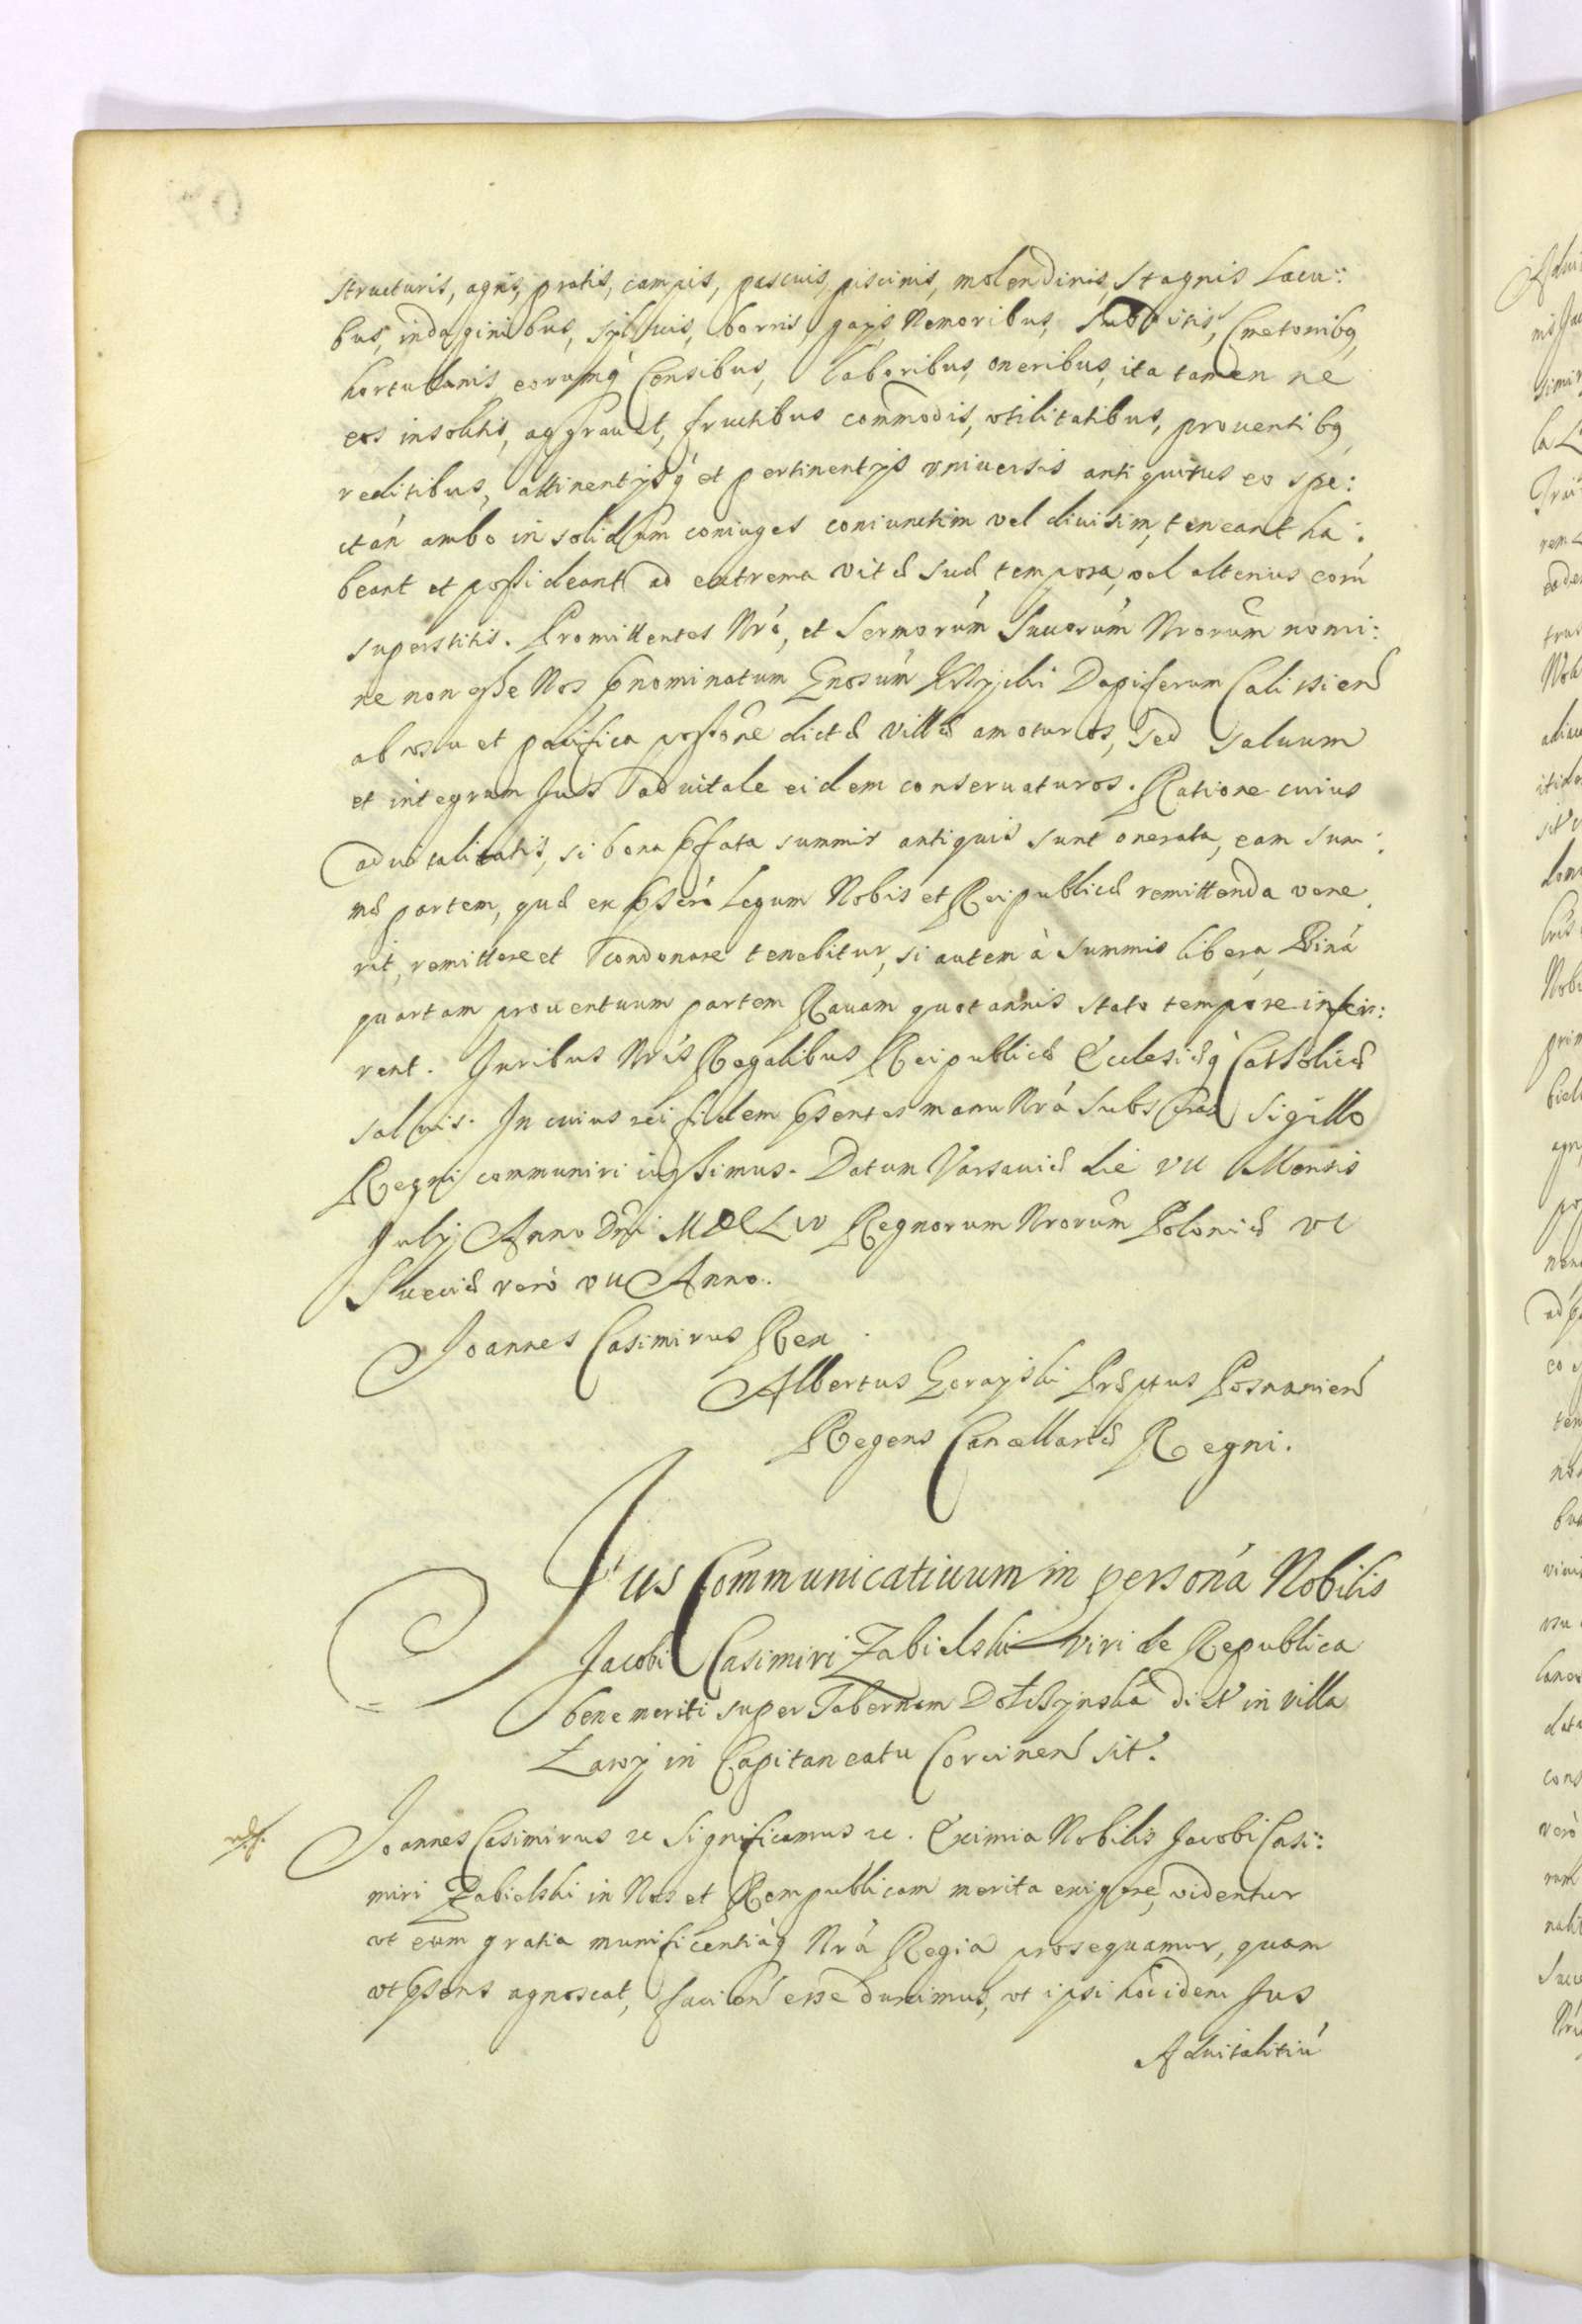 structuris, agris, pratis, campis, pascuis, piscinis, molendinis, stagnis Lacu:
bus, indaginibus, sylvis, borris, gajs, Nemoribus, Subditis, Cmetonibq,
hortulanis eorumq Censibus, laboribus, oneribus, ita tamen ne
eos insolitis, aggrauet, fructibus commodis, vtilitatibus, prouentibq,
reditibus, attinentijsq et pertinentijs vniuersis antiquitus eo spe:
ctan ambo in solidum coniuges coniunctim vel diuisim, teneant ha:
beant et possideant ad extrema vitæ suæ tempora, vel alterius eorú
superstitis. Promittentes Nró, et Sermorúm Succrúm Nrorúm nomi:
ne non esse Nos pnominatum Gnosúm Dapiferum Calissien
ab vsu et pacifica possone dictæ villæ amoturos, sed saluum
et integrum Jus aduitale eidem conseruaturos. Ratione cuius
aduitalitatis, si bona pfata summis antiquis sunt onerata, eam sum:
mæ partem, quæ ex psérò Legum Nobis et Reipublicæ remittenda vene:
rit, remittere et condonare tenebitur, si autem à summis libera,
quartam prouentuum partem Rauam quotannis stato tempore infer:
rent. Juribus Nrís Regalibus Reipublicæ Ecclesiæq Catholicæ
saluis. In cuius rei fidem psentes manu Nrá Subscras sigillo
Regni communiri iussimus. Datum Varsauiæ die VII Mensis
July Anno Dni MDCLIV Regnorum Nrorúm Poloniæ VI
Sueciæ verò VII Anno.
Joannes Casimirus Rex
Albertus Gorayski Præptus Posnanien
Regens Cancellariæ Regni.
Jus Communicatiuum in personá Nobilis
Jacobi Casimiri Zabielski viri de Republica
bene meriti super Tabernam dict in villa
Zawy in Capitaneatu Corcinen sit.
Joannes Casimirus rc Significamus rc. Eximia Nobilis Jacobi Casi:
miri Zabielski in Nos et Rempublicam merita exigere videntur
vt eum gratia munificentiáq Nrá Regia prosequamur, quam
vt psens agnoscat, facien esse duximus, vt ipsi hocidem Jus
Aduitalitiú